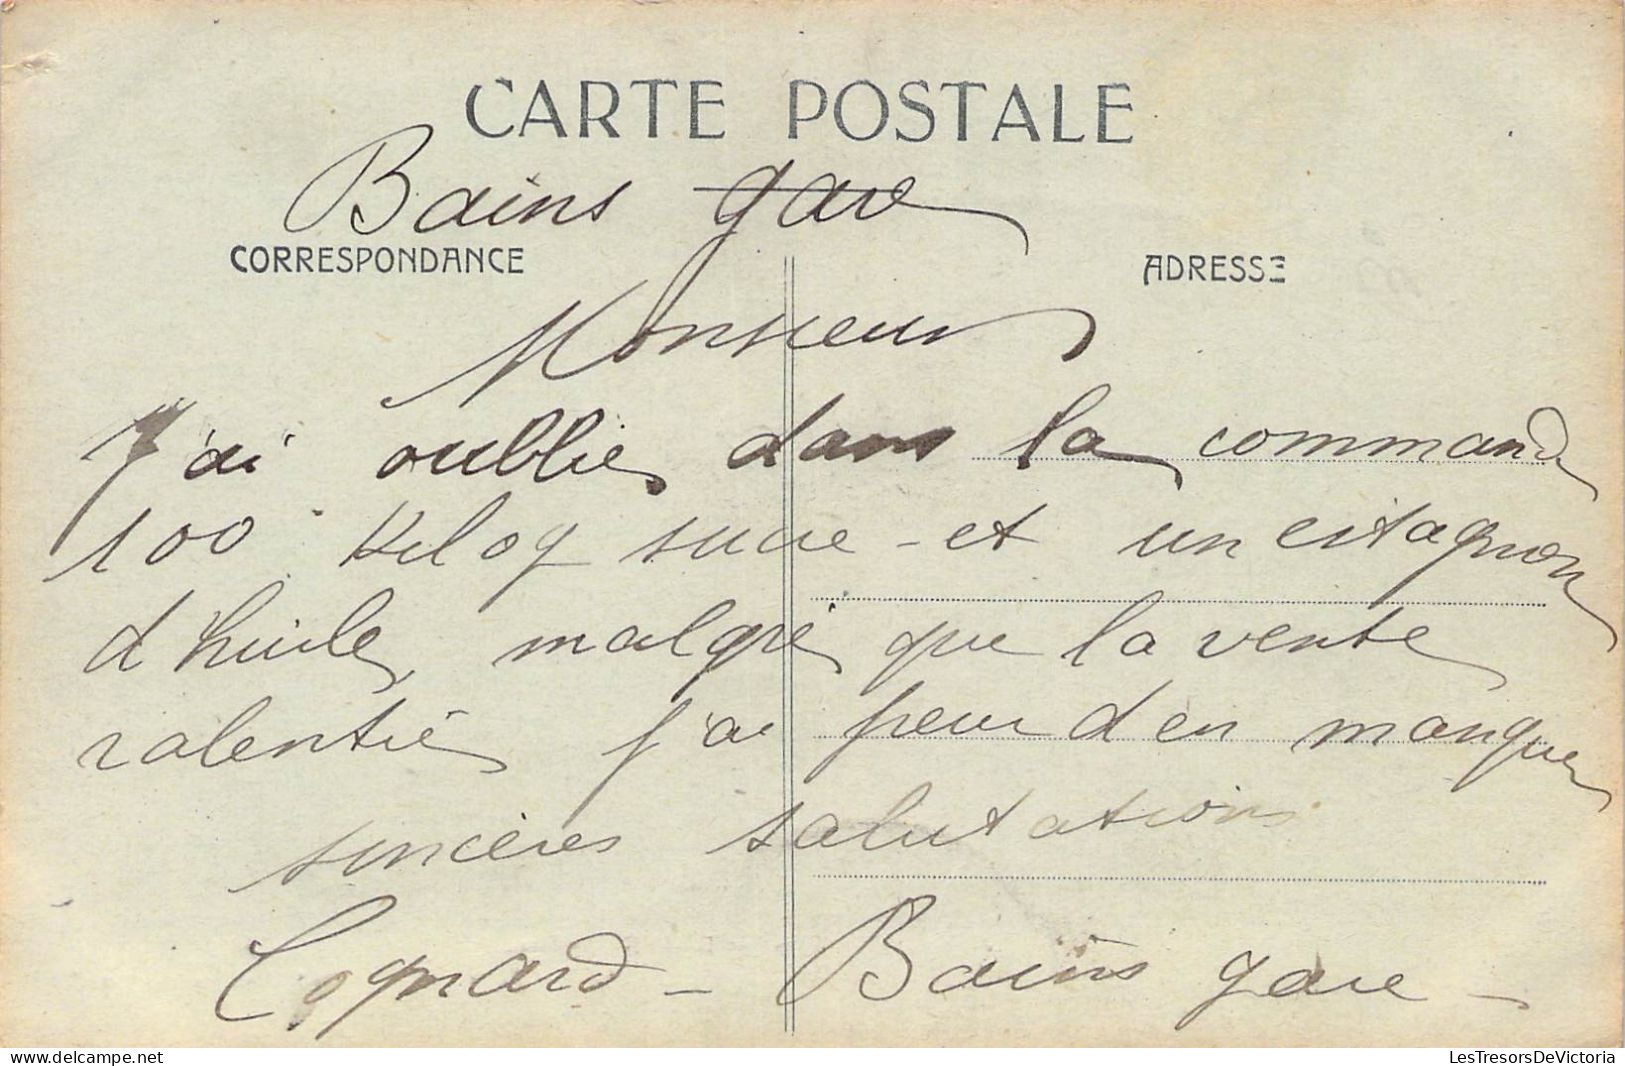 CARTE POSTALE
Bains gare
CORRESPONDANCE
ADRESSE
Monsieur
J'ai oublié dans la commande
100 Kilog sucre - et un estagnon
d'huile, malgré que la vente
ralentie j'ai peur d'en manquer
sincères salutations
Cognard - Bains gare -
LesTresorsDeVictoria
delcampe.net